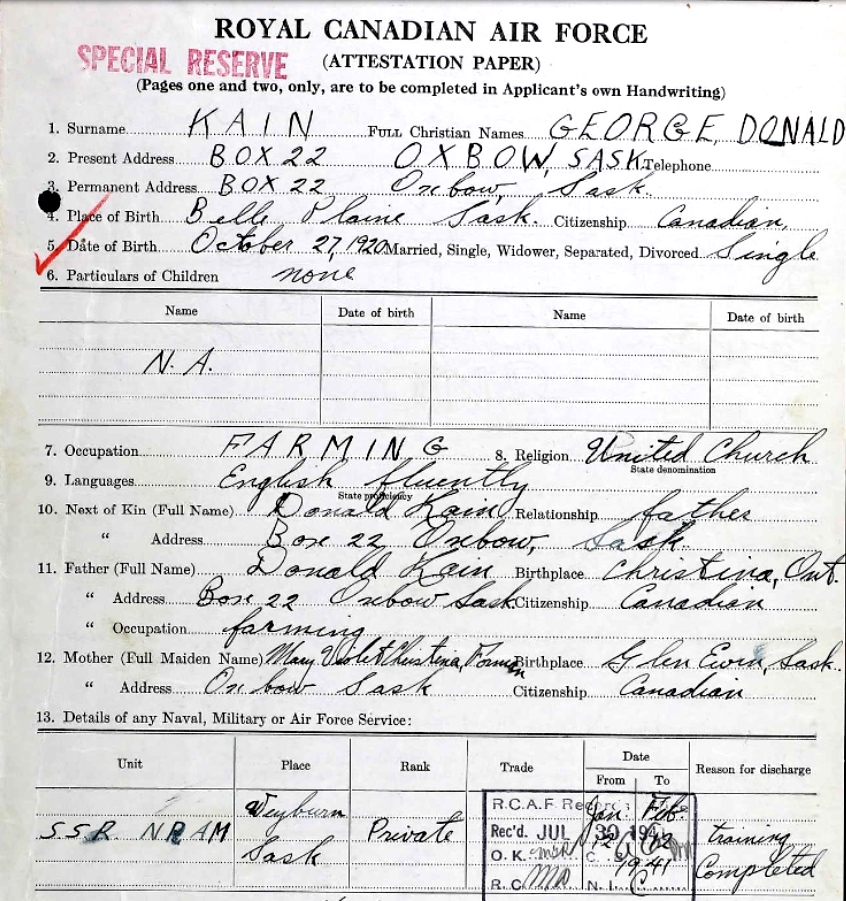 ROYAL CANADIAN AIR FORCE
SPECIAL RESERVE
(ATTESTATION PAPER)
(Pages one and two, only, are to be completed in Applicant's own Handwriting)
1. Surname KAIN FULL Christian Names GEORGE, DONALD
2. Present Address BOX 22 OXBOW, SASK. Telephone
3. Permanent Address BOX 22 Oxbow, Sask.
4. Place of Birth Belle Plaine Sask. Citizenship Canadian,
5. Date of Birth October 27, 1920 Married, Single, Widower, Separated, Divorced Single
6. Particulars of Children none
Name Date of birth Name Date of birth
N. A.
7. Occupation FARMING 8. Religion United Church
State denomination
9. Languages English fluently
State proficiency
10. Next of Kin (Full Name) Donald Kain Relationship father
" Address Box 22 Oxbow, Sask.
11. Father (Full Name) Donald Kain Birthplace Christina, Ont.
" Address Box 22 Oxbow Sask. Citizenship Canadian
" Occupation farming
12. Mother (Full Maiden Name) Mary Violet Christina, Birthplace Glen Ewin, Sask.
" Address Oxbow Sask Citizenship Canadian
13. Details of any Naval, Military or Air Force Service:
Unit Place Rank Trade Date Reason for discharge
From To
Weyburn R.C.A.F. Records Office Jan. Feb.
SSR NRAM Private Rec'd. JUL 30 1941 12 training
Sask O. K. 1941 Completed
R. C. N. I.